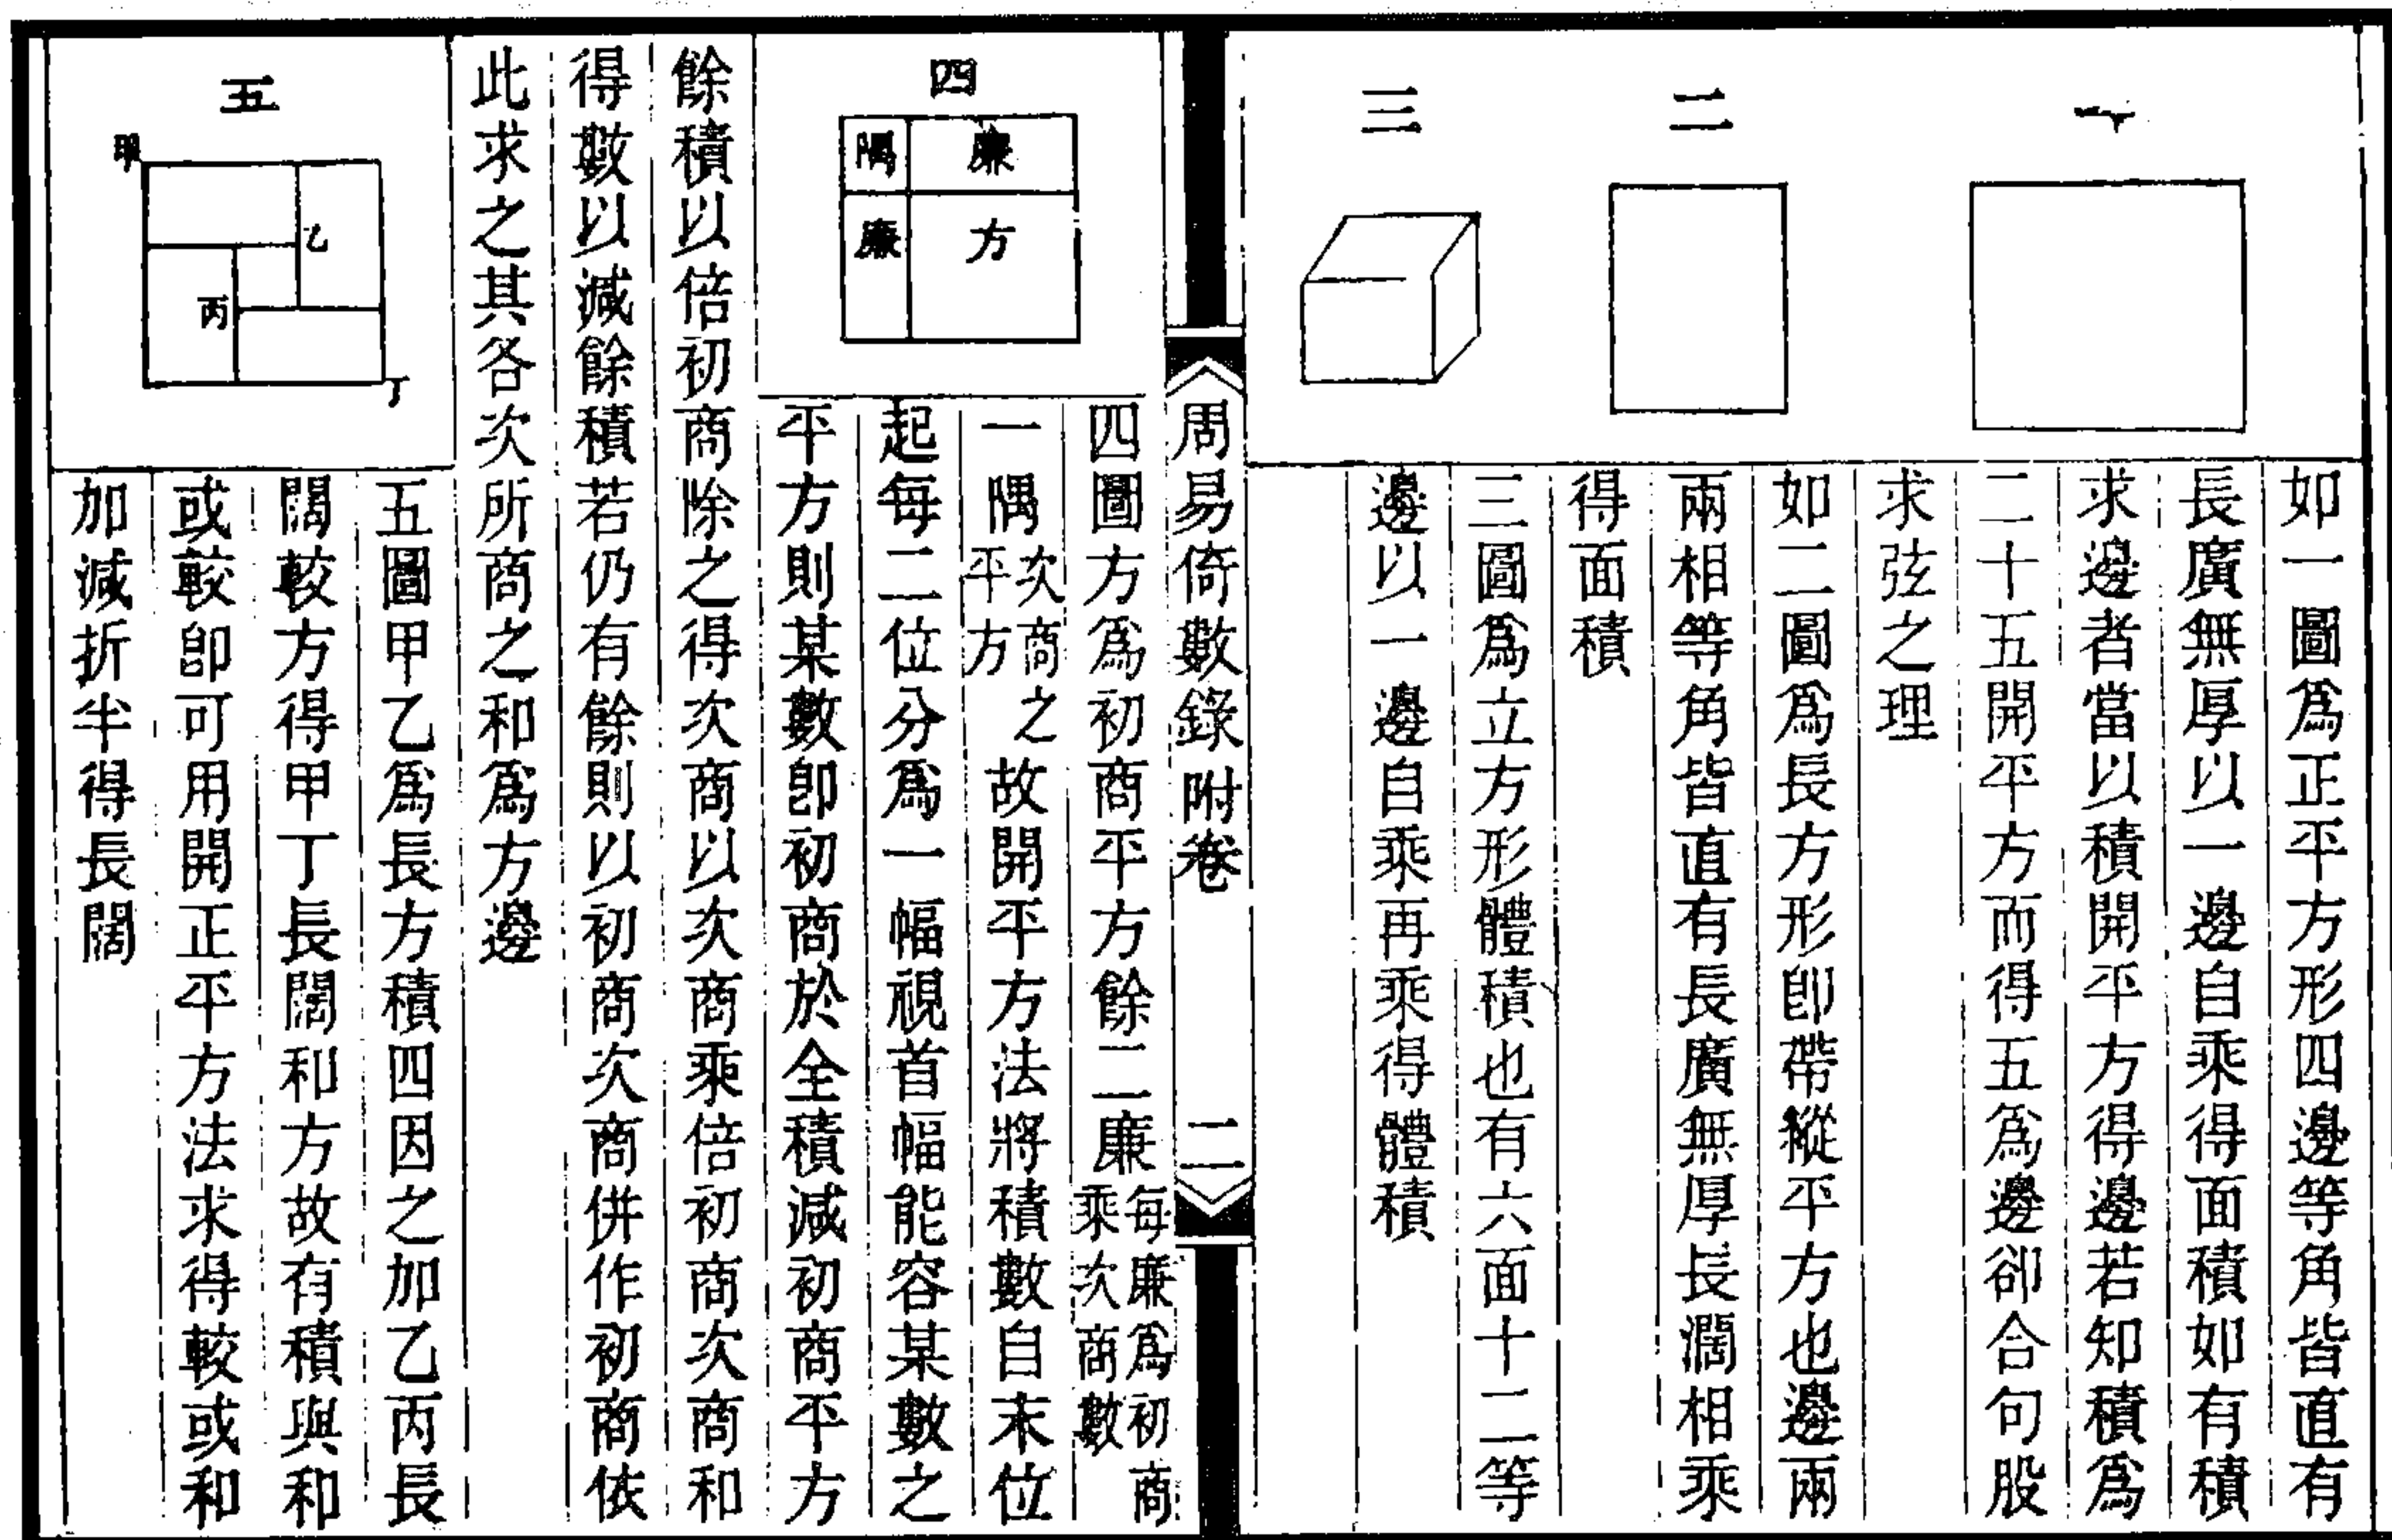 一
二
三
如一圖爲正平方形四邊等角皆直有
長廣無厚以一邊自乘得面積如有積
求邊者當以積開平方得邊若知積爲
二十五開平方而得五爲邊卻合句股
求弦之理
如二圖爲長方形卽帶縱平方也邊兩
兩相等角皆直有長廣無厚長濶相乘
得面積
三圖爲立方形體積也有六面十二等
邊以一邊自乘再乘得體積
周易倚數錄 附卷 二
四
廉
隅
方
廉
四圖方爲初商平方餘二廉每廉爲初商
乘次商數
一隅次商之
平方故開平方法將積數自末位
起每二位分爲一幅視首幅能容某數之
平方則某數卽初商於全積減初商平方
餘積以倍初商除之得次商以次商乘倍初商次商和
得數以減餘積若仍有餘則以初商次商併作初商依
此求之其各次所商之和爲方邊
五
甲
乙
丙
丁
五圖甲乙爲長方積四因之加乙丙長
闊較方得甲丁長闊和方故有積與和
或較卽可用開正平方法求得較或和
加減折半得長闊